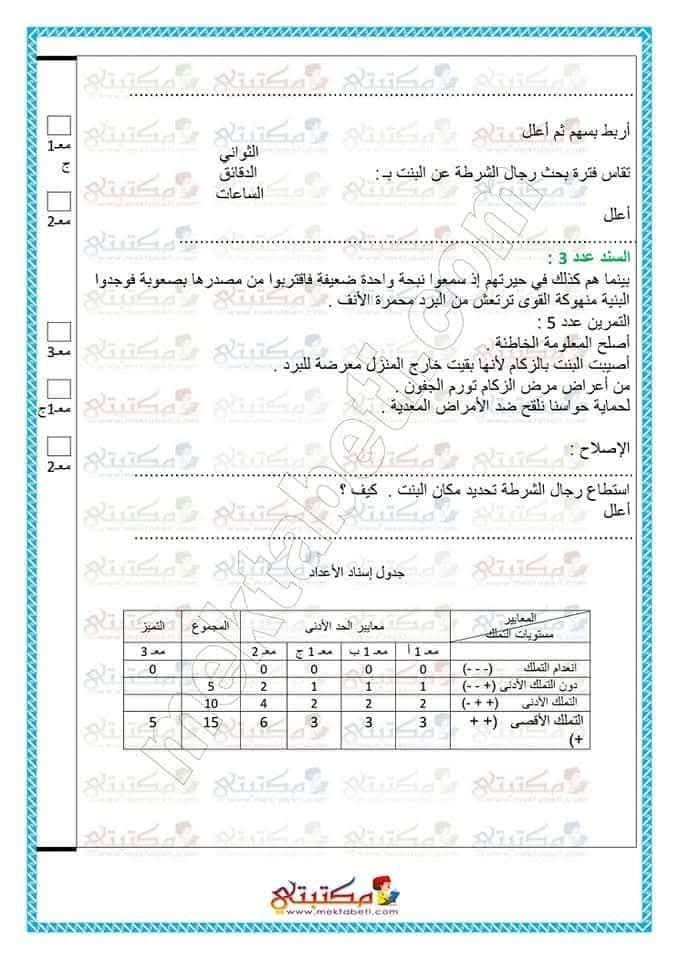 أربط بسهم ثم أعلل
الثواني
تقاس فترة بحث رجال الشرطة عن البنت بـ : الدقائق
الساعات
أعلل
معـ1
ج
معـ2
السند عدد 3 :
بينما هم كذلك في حيرتهم إذ سمعوا نبحة واحدة ضعيفة فاقتربوا من مصدرها بصعوبة فوجدوا
البنية منهوكة القوى ترتعش من البرد محمرة الأنف .
التمرين عدد 5 :
أصلح المعلومة الخاطئة .
أصيبت البنت بالزكام لأنها بقيت خارج المنزل معرضة للبرد .
من أعراض مرض الزكام تورم الجفون .
لحماية حواسنا نلقح ضد الأمراض المعدية .
معـ3
معـ1ج
معـ2
الإصلاح :
استطاع رجال الشرطة تحديد مكان البنت . كيف ؟
أعلل
جدول إسناد الأعداد
المعايير
مستويات التملك
معايير الحد الأدنى المجموع التميز
معـ 1 أ معـ 1 ب معـ 1 ج معـ 2 معـ 3
انعدام التملك (- - -) 0 0 0 0 0
دون التملك الأدنى (+ - -) 1 1 1 2 5
التملك الأدنى (+ + -) 2 2 2 4 10
التملك الأقصى (+ + +) 3 3 3 6 15 5
مكتبتي
www.mektabeti.com
mektabeti.com